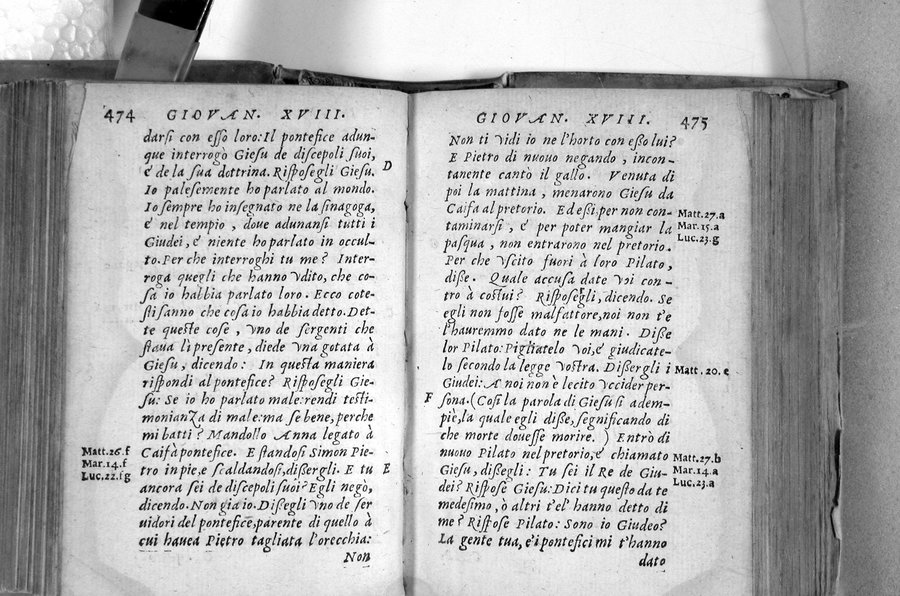 474 GIOVAN. XVIII.
darsi con esso loro: Il pontefice adun-
que interrogò Giesu de discepoli suoi,
e' de la sua dottrina. Rispose gli Giesu. D
Io palesemente ho parlato al mondo.
Io sempre ho insegnato ne la sinagoga,
e' nel tempio, doue adunansi tutti i
Giudei, e' niente ho parlato in occul-
to. Per che interroghi tu me? Inter-
roga quegli che hanno vdito, che co-
sa io habbia parlato loro. Ecco cote-
sti sanno che cosa io habbia detto. Det-
te queste cose, vno de sergenti che
staua lì presente, diede vna gotata à
Giesu, dicendo: In questa maniera
rispondi al pontefice? Risposegli Gie-
su: Se io ho parlato male: rendi testi-
monianza di male: ma se bene, perche
mi batti? Mandollo Anna legato à
Matt.26.f Caifà pontefice. E standosi Simon Pie-
Mar.14.f tro in pie, e scaldandosi, dissergli. E tu E
Luc.22.fg ancora sei de discepoli suoi? Egli negò,
dicendo. Non gia io. Dissegli vno de ser
uidori del pontefice, parente di quello à
cui hauea Pietro tagliata l'orecchia:
Non
GIOVAN. XVIII. 475
Non ti vidi io ne l'horto con esso lui?
E Pietro di nuouo negando, incon-
tanente cantò il gallo. Venuta di
poi la mattina, menarono Giesu da
Caifa al pretorio. Ed essi per non con- Matt.27.a
taminarsi, e' per poter mangiar la Mar.15.a
pasqua, non entrarono nel pretorio. Luc.23.g
Per che vscito fuori à loro Pilato,
disse. Quale accusa date voi con-
tro à costui? Risposegli, dicendo. Se
egli non fosse malfattore, noi non t'e
l'hauremmo dato ne le mani. Disse
lor Pilato: Pigliatelo voi, e' giudicate-
lo secondo la legge vostra. Dissergli i Matt.20.e
Giudei: A noi non è lecito vccider per-
F sona. (Così la parola di Giesu si adem-
piè, la quale egli disse, segnificando di
che morte douesse morire.) Entrò di
nuouo Pilato nel pretorio, e' chiamato Matt.27.b
Giesu, dissegli: Tu sei il Re de Giu- Mar.14.a
dei? Rispose Giesu: Dici tu questo da te Luc.23.a
medesimo, ò altri t'el' hanno detto di
me? Rispose Pilato: Sono io Giudeo?
La gente tua, e' i pontefici mi t'hanno
dato